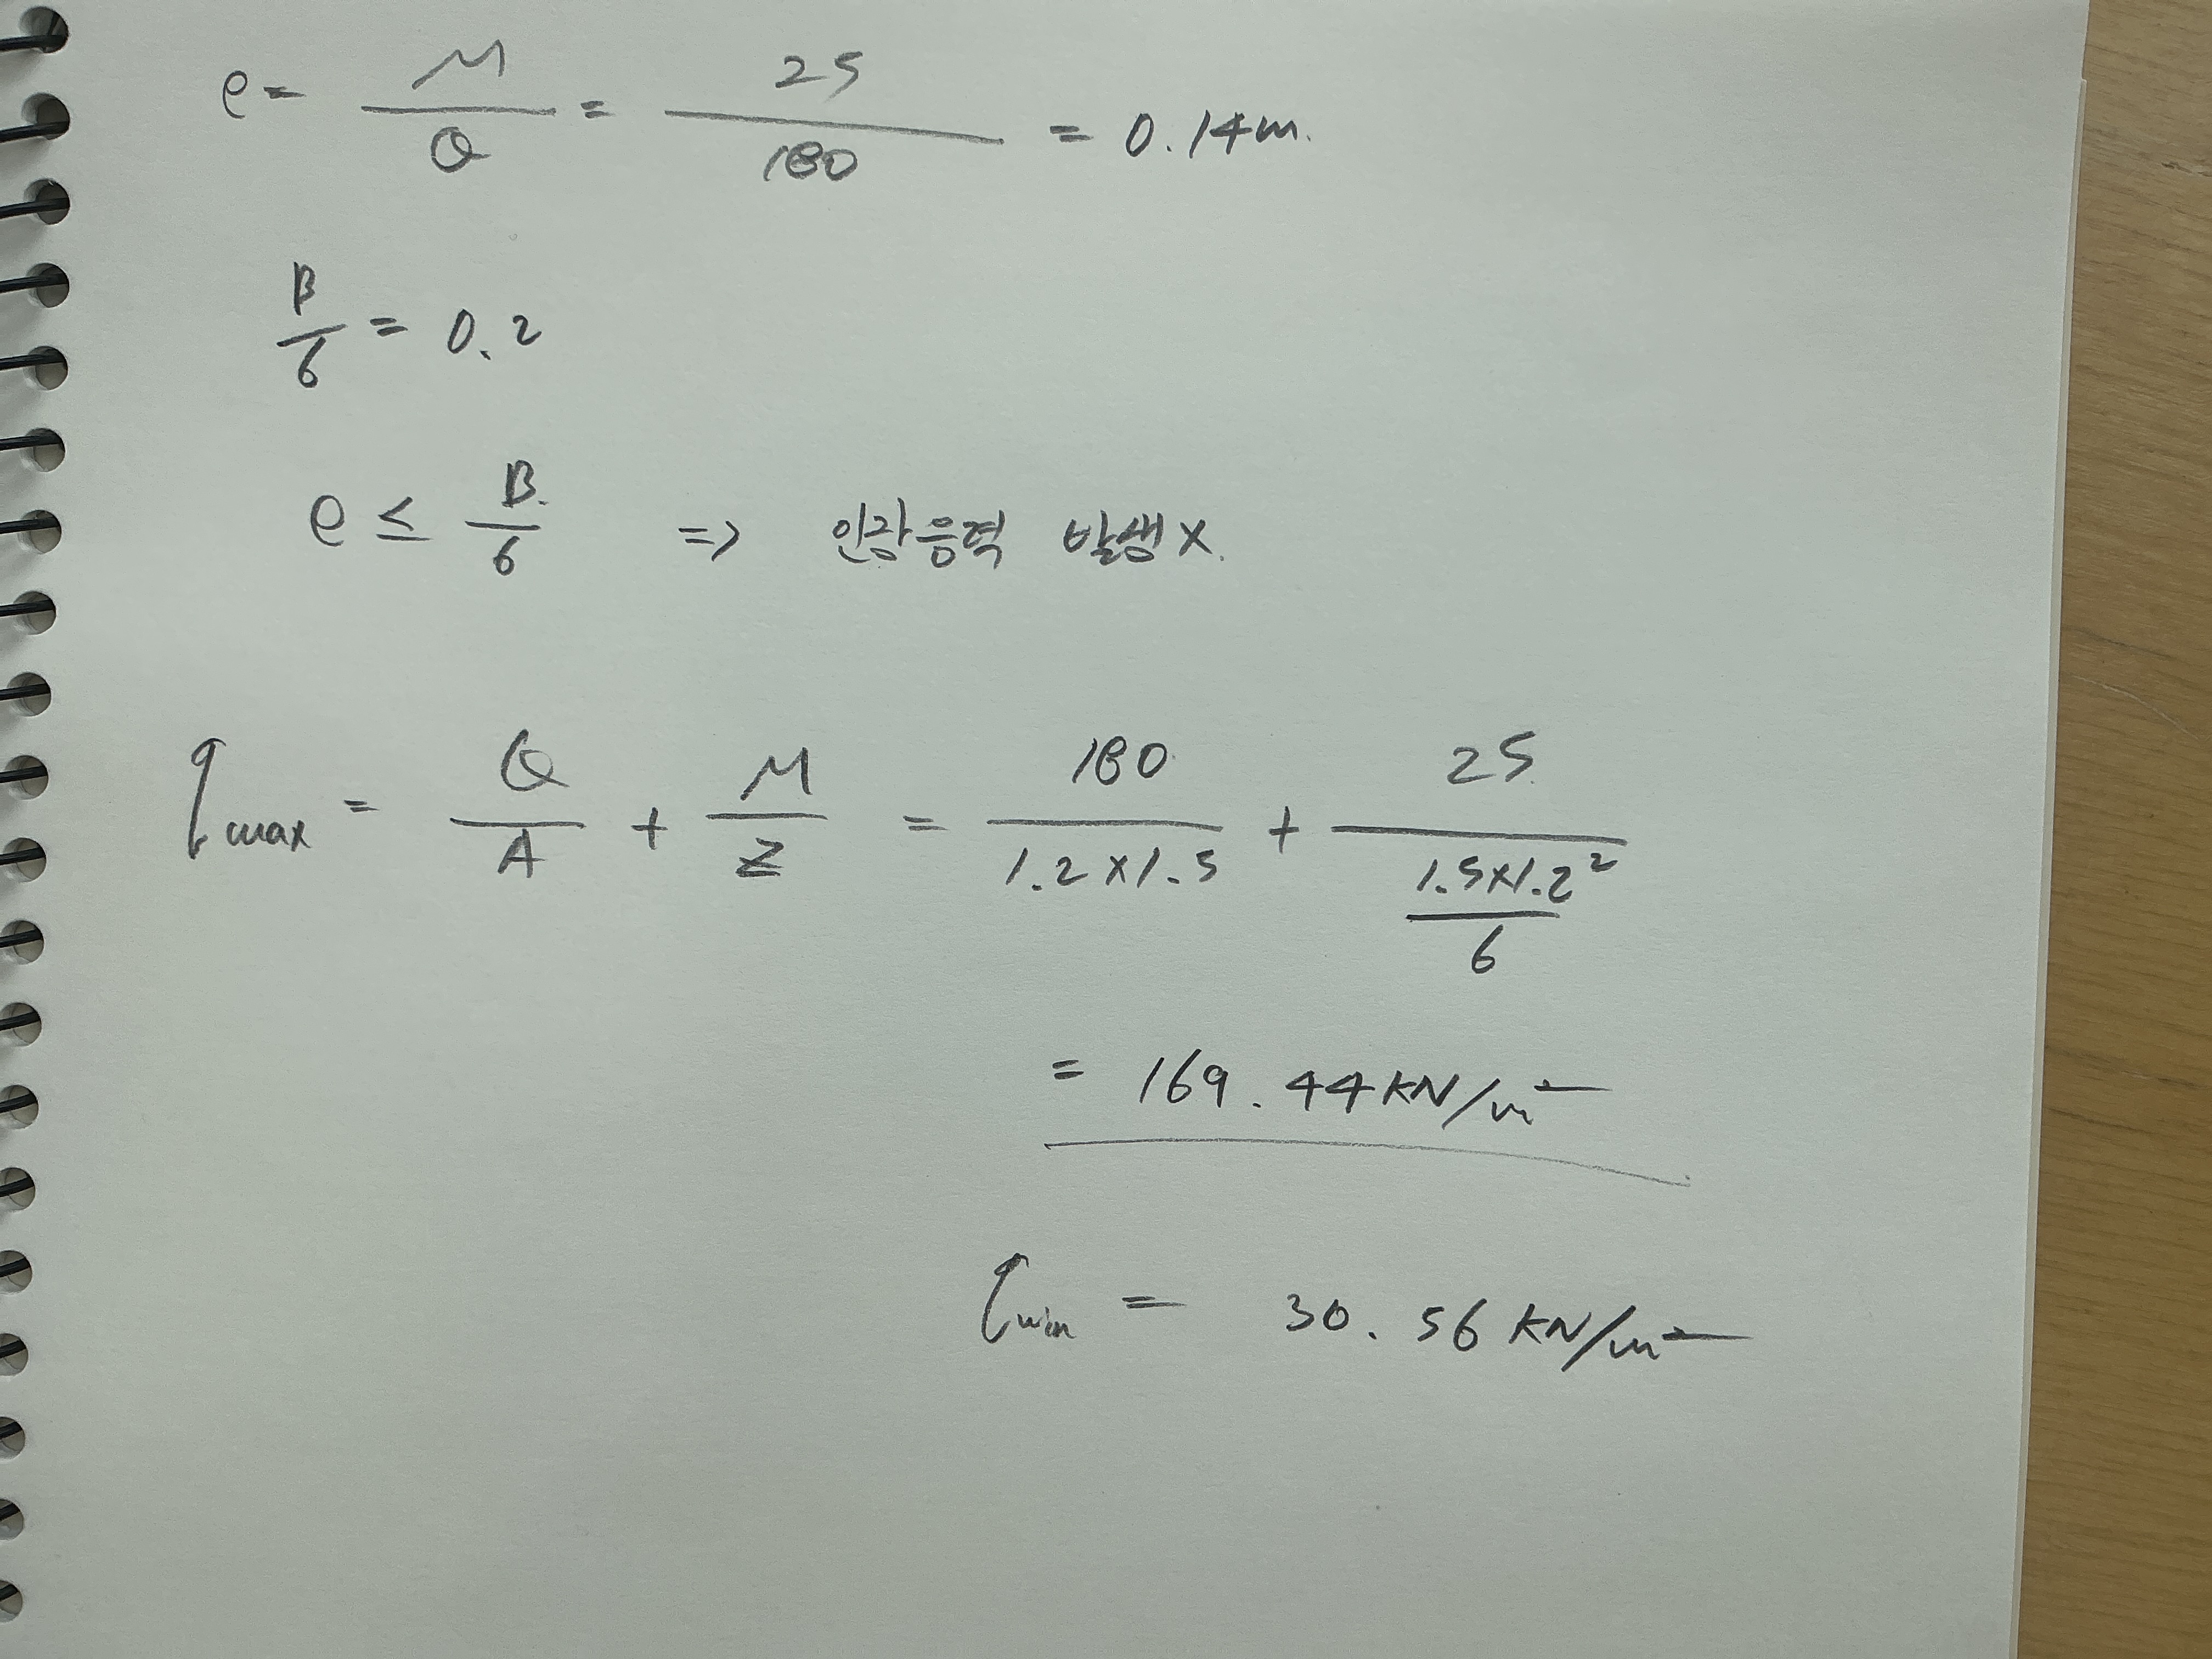 e = M/Q = 25/180 = 0.14m.
B/6 = 0.2
e ≤ B/6 => 인장응력 발생 X.
qmax = Q/A + M/Z = 180/(1.2×1.5) + 25/((1.5×1.2²)/6)
= 169.44 KN/m²
qmin = 30.56 KN/m²